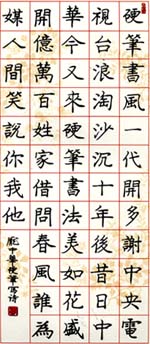 硬筆書風一代開多謝中央電
視台浪淘沙沉十年後昔日中
華今又來硬筆書法美如花盛
開億萬百姓家借問春風誰為
媒人間笑說你我他
龐中華硬筆写诗